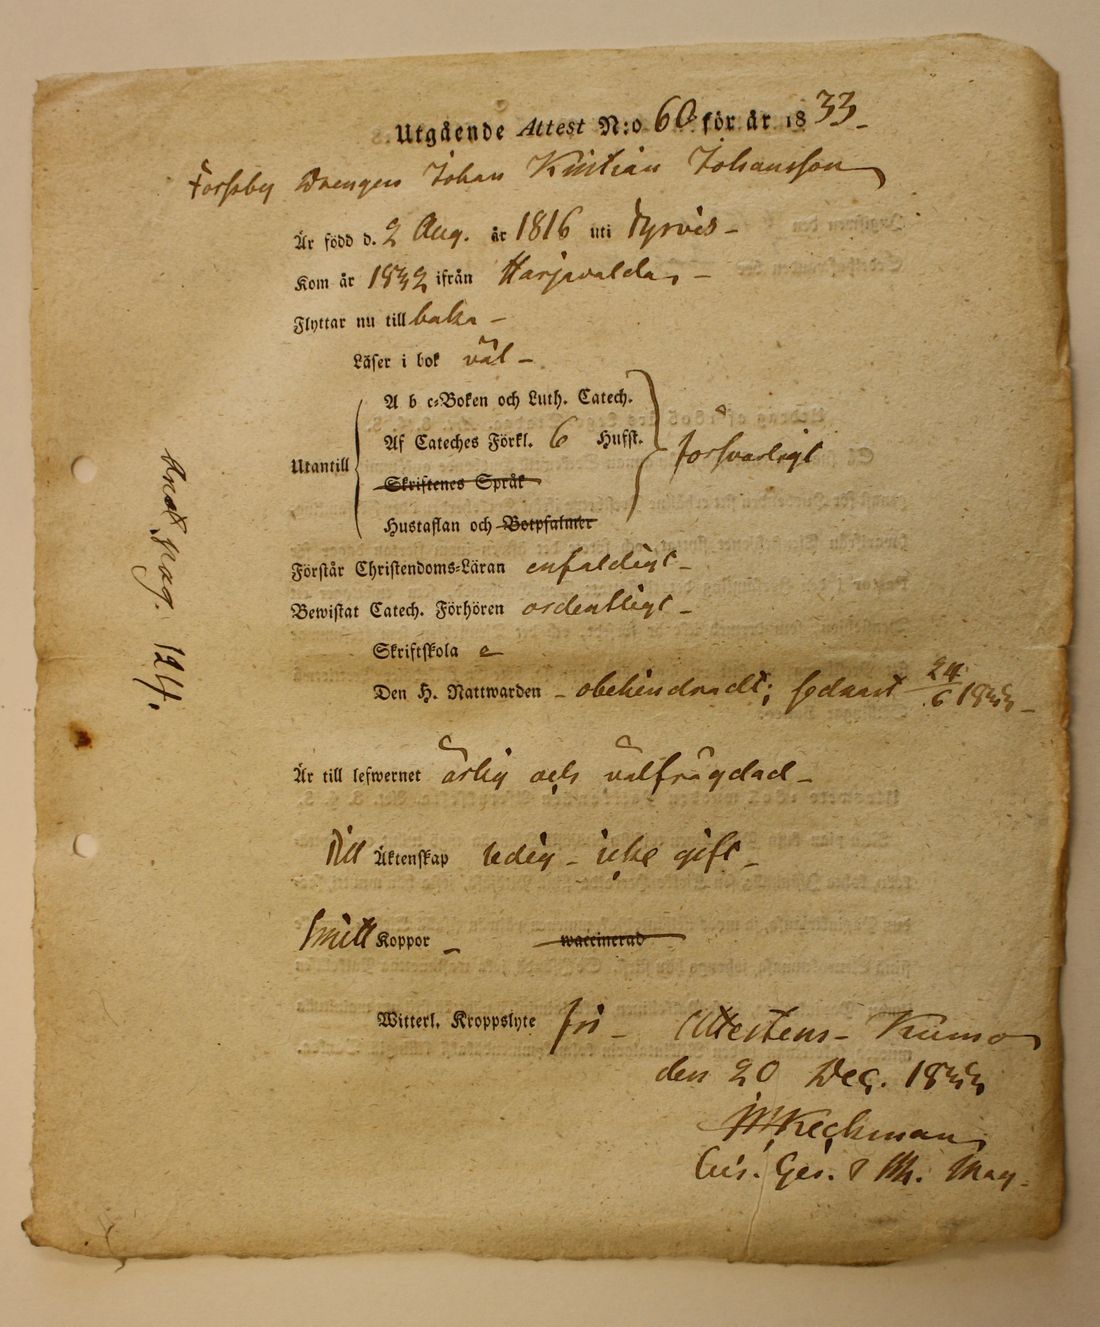 Utgående Attest N:o 60 för år 1833
Forsby Drengen Johan Kristian Johansson
Är född d. 2 Aug. år 1816 uti Tyrvis
Kom år 1832 ifrån Harjavalda
Flyttar nu till baka
Läser i bok väl
A b c-Boken och Luth. Catech.
Af Cateches Förkl. 6 Husst.
Utantill försvarligt
Skriftenes Språk
Hustaflan och Botpsalmer
Förstår Christendoms-Läran enfaldigt
Bewistat Catech. Förhören ordentligt
Skriftskola
Den H. Nattwarden obehindradt; sednast 24/6 1833
Är till lefwernet ärlig och välfrägdad
Till Äktenskap ledig - icke gift
Smitt Koppor waccinerad
Witterl. Kroppslyte fri
Attesteras - Kumo
den 20 Dec. 1833
Keckman
pag. 124.